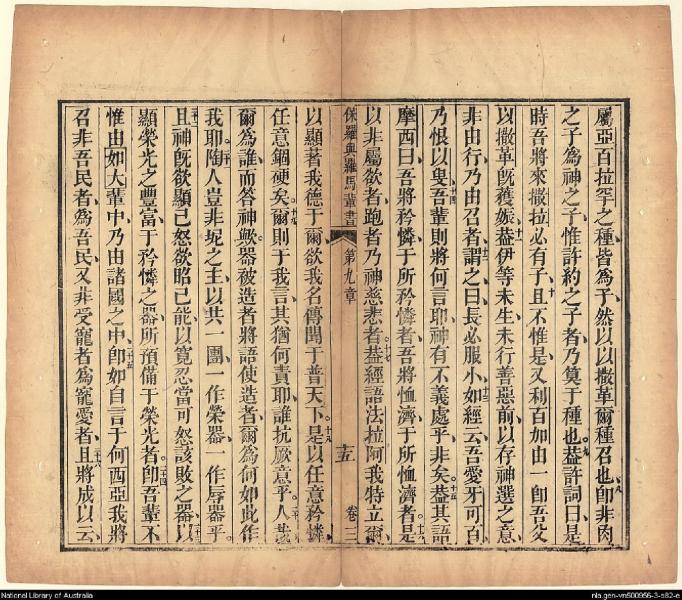 屬亞百拉罕之種皆為子然以以撒革爾種召也即非肉
之子為神之子惟許約之子者乃筭于種也蓋許詞曰是
時吾將來撒拉必有子且不惟是又利百加由一即吾父
以撒革既獲娠蓋伊等未生未行善惡前以存神選之意
非由行乃由召者謂之曰長必服小如經云吾愛牙可百
乃恨以叟吾輩則將何言耶神有不義處乎非矣蓋其語
摩西曰吾將矜憐于所矜憐者吾將恤濟于所恤濟者是
以非屬欲者跑者乃神慈悲者蓋經語法拉阿我特立爾
保羅與羅馬輩書 第九章 卷二
以顯著我德于爾欲我名傳聞于普天下是以任意矜憐
任意錮硬矣爾則于我言其猶何責耶誰抗厥意乎人哉
爾為誰而答神歟器被造者將語使造者爾為何如此作
我耶陶人豈非坭之主以共一團一作榮器一作辱器乎
且神既欲顯己怒欲昭己能以寬忍當可怒該敗之器以
顯榮光之豐富于矜憐之器所預備于榮光者即吾輩不
惟由如大輩中乃由諸國之中即如自言于何西亞我將
召非吾民者為吾民又非受寵者為寵愛者且將成以云
National Library of Australia
nla.gen-vn500956-3-s82-e